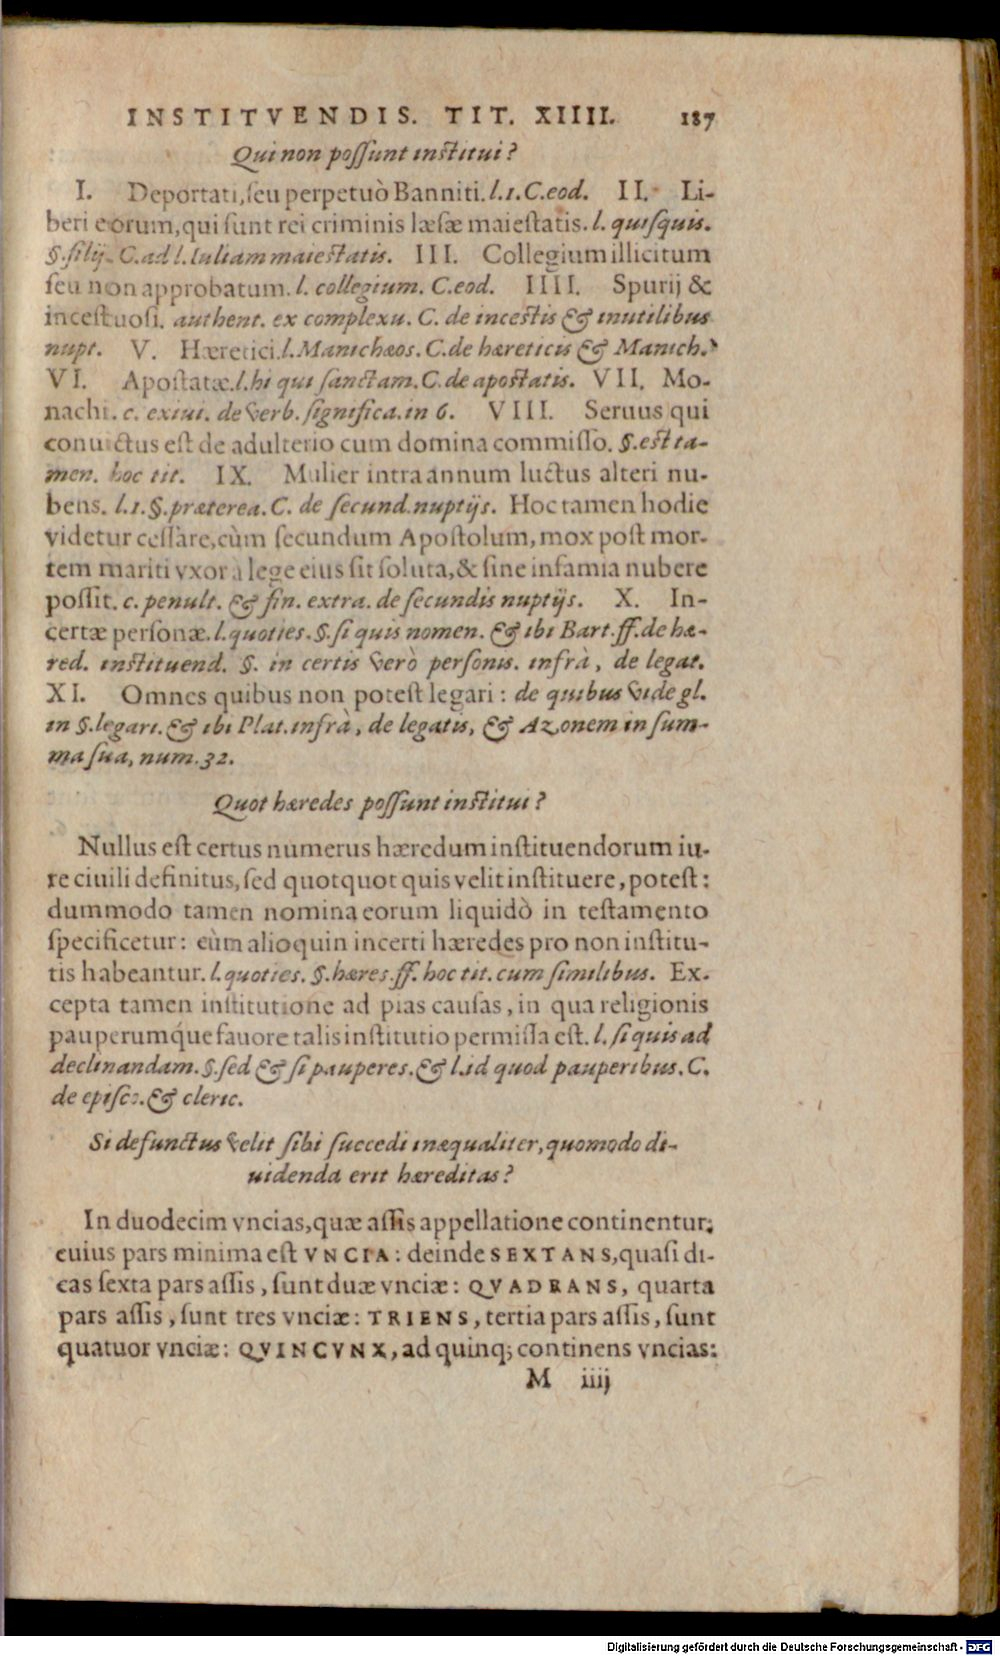 INSTITVENDIS. TIT. XIIII. 187
Qui non possunt institui?
I. Deportati, seu perpetuò Banniti. l.1. C. eod. II. Li-
beri eorum, qui sunt rei criminis læsæ maiestatis. l. quisquis.
§. filij. C. ad l. Iuliam maiestatis. III. Collegium illicitum
seu non approbatum. l. collegium. C. eod. IIII. Spurij &
incestuosi. authent. ex complexu. C. de incestis & inutilibus
nupt. V. Hæretici. l. Manichæos. C. de hæreticis & Manich.
VI. Apostatæ. l. hi qui sanctam. C. de apostatis. VII. Mo-
nachi. c. exiui. de verb. significa. in 6. VIII. Seruus qui
conuictus est de adulterio cum domina commisso. §. est ta-
men. hoc tit. IX. Mulier intra annum luctus alteri nu-
bens. l.1. §. præterea. C. de secund. nuptijs. Hoc tamen hodie
videtur cessàre, cùm secundum Apostolum, mox post mor-
tem mariti vxor à lege eius sit soluta, & sine infamia nubere
possit. c. penult. & fin. extra. de secundis nuptijs. X. In-
certæ personæ. l. quoties. §. si quis nomen. & ibi Bart. ff. de hæ-
red. instituend. §. in certis verò personis. infrà, de legat.
XI. Omnes quibus non potest legari: de quibus vide gl.
in §. legari. & ibi Plat. infrà, de legatis, & Azonem in sum-
ma sua, num. 32.
Quot hæredes possunt institui?
Nullus est certus numerus hæredum instituendorum iu-
re ciuili definitus, sed quotquot quis velit instituere, potest:
dummodo tamen nomina eorum liquidò in testamento
specificetur: cùm alioquin incerti hæredes pro non institu-
tis habeantur. l. quoties. §. hæres. ff. hoc tit. cum similibus. Ex-
cepta tamen institutione ad pias causas, in qua religionis
pauperumq́ue fauore talis institutio permissa est. l. si quis ad
declinandam. §. sed & si pauperes. & l. id quod pauperibus. C.
de episc. & cleric.
Si defunctus velit sibi succedi inæqualiter, quomodo di-
uidenda erit hæreditas?
In duodecim vncias, quæ assis appellatione continentur:
cuius pars minima est VNCIA: deinde SEXTANS, quasi di-
cas sexta pars assis, sunt duæ vnciæ: QVADRANS, quarta
pars assis, sunt tres vnciæ: TRIENS, tertia pars assis, sunt
quatuor vnciæ: QVINCVNX, ad quinq; continens vncias:
M iiij
Digitalisierung gefördert durch die Deutsche Forschungsgemeinschaft - DFG